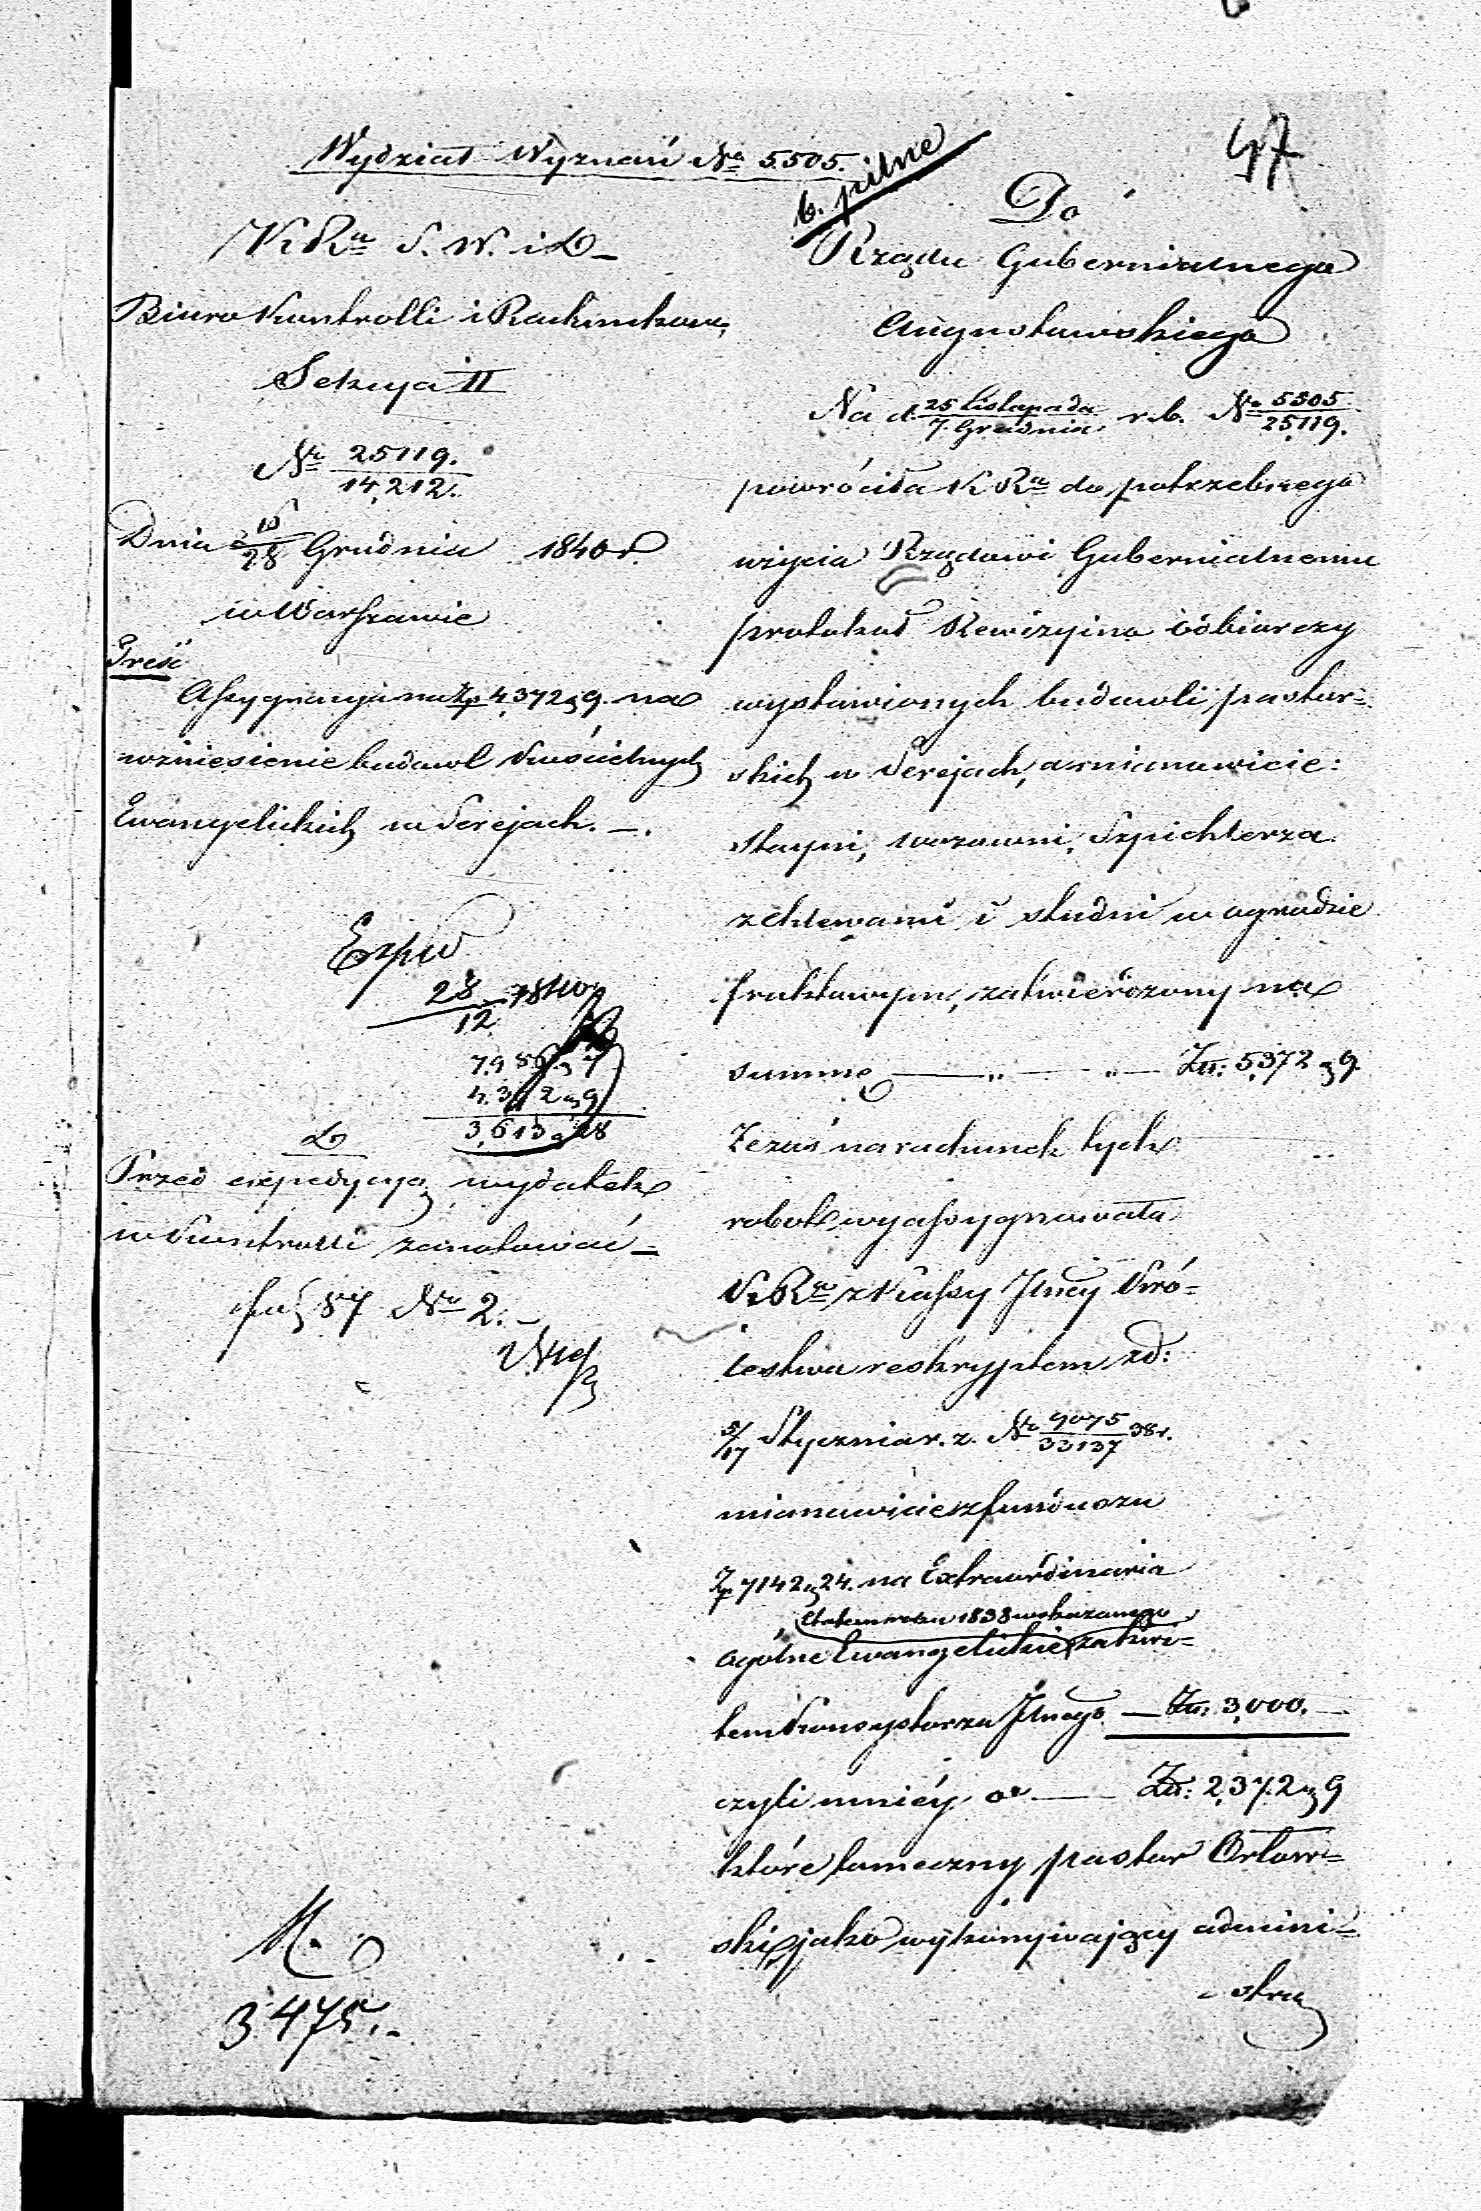 47
Wydział Wyznań No 5505.
b. pilne
K. Rna S. W. i D.
Biuro Kontrolli i Rachunkow.
Sekcya II
Nr 25119. / 14,212.
Dnia 16/28 Grudnia 1840 r.
w Warszawie
Treść
Assygnacya na Zp 4,372 g 9. na
wzniesienie budowl Kościelnych
Ewangelickich w Serejach.
Exped
28/12
7,986 g 7
4,372 g 9
3,613 g 28
D
Przed expedycyą wydatek
w Kontrolli zanotować
87 Nr 2.
M.
3475.
Do
Rządu Gubernialnego
Augustowskiego
Na d. 25 Listopada / 7. Grudnia r. b. Nr 5505 / 25119.
powróciła K Rna do potrzebnego
użycia Rządowi Gubernialnemu
protokuł Rewizyino odbiorczy
wystawionych budowli pastor=
skich w Serejach, a mianowicie:
stayni, wozowni, Szpichlerza
z chlewami i studni w ogrodzie
fruktowym, zatwierdzony na
summę — „ — „ — Zł: 5,372 g 9.
Że zaś na rachunek tych
robot wyassygnowała
K. Rna z Kassy Jlney Kró=
lestwa reskryptem z d:
5/17 Stycznia r. z. Nr 9075 / 33137 38 r.
mianowicie z funduszu
Zp 7142 g 24. na Extraordinaria
Etatem roku 1838 wskazanego
ogólne Ewangelickie za kwi=
tem Konsystorza Jlnego — Zł: 3,000. —
czyli mniéy o — Zł: 2,372 g 9
które tameczny pastor Orłow=
ski jako wykonywający admini=
stra